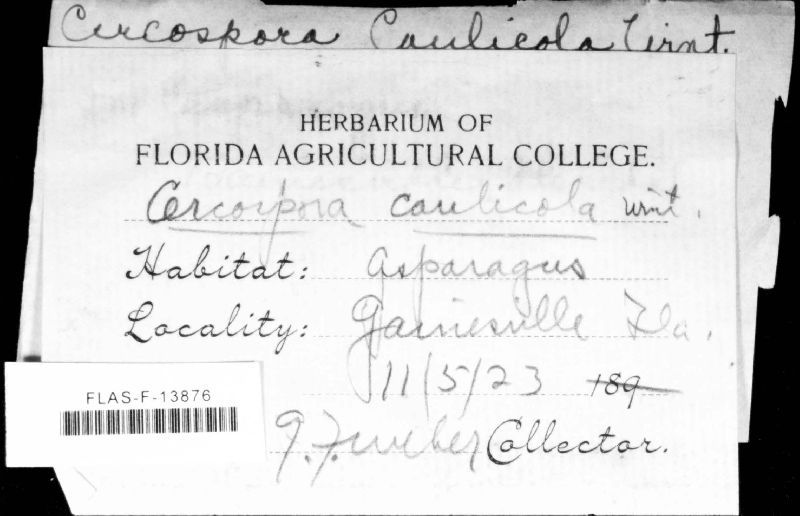 Cercospora Caulicola Wint.
HERBARIUM OF
FLORIDA AGRICULTURAL COLLEGE.
Cercospora caulicola Wint.
Habitat: Asparagus
Locality: Gainesville Fla.
11/5/23 189
FLAS-F-13876
G.F. Weber Collector.